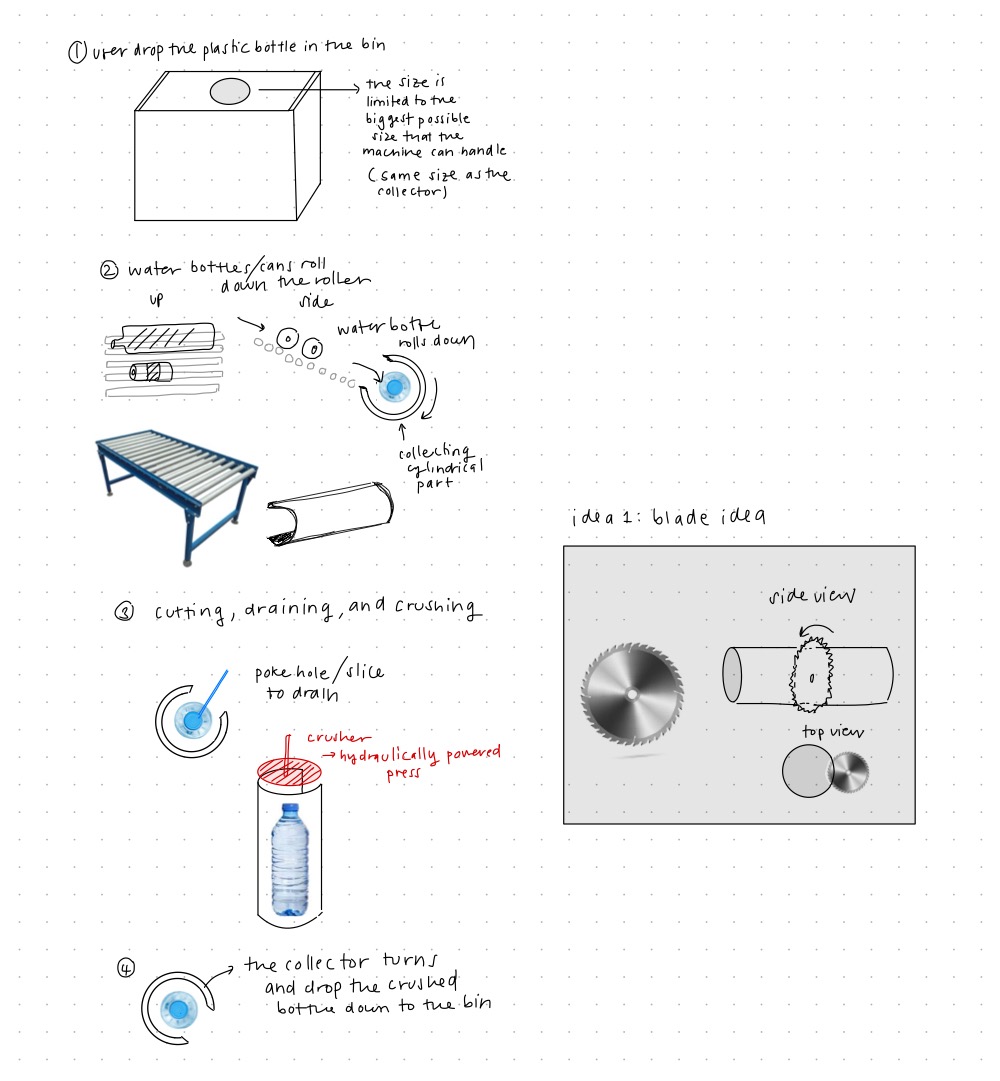 ① user drop the plastic bottle in the bin
the size is
limited to the
biggest possible
size that the
machine can handle
(same size as the
collector)
② water bottles/cans roll
down the roller
up
side
water bottle
rolls down
collecting
cylindrical
part
idea 1: blade idea
side view
top view
③ cutting, draining, and crushing
poke hole/slice
to drain
crusher
→ hydraulically powered
press
④ the collector turns
and drop the crushed
bottle down to the bin